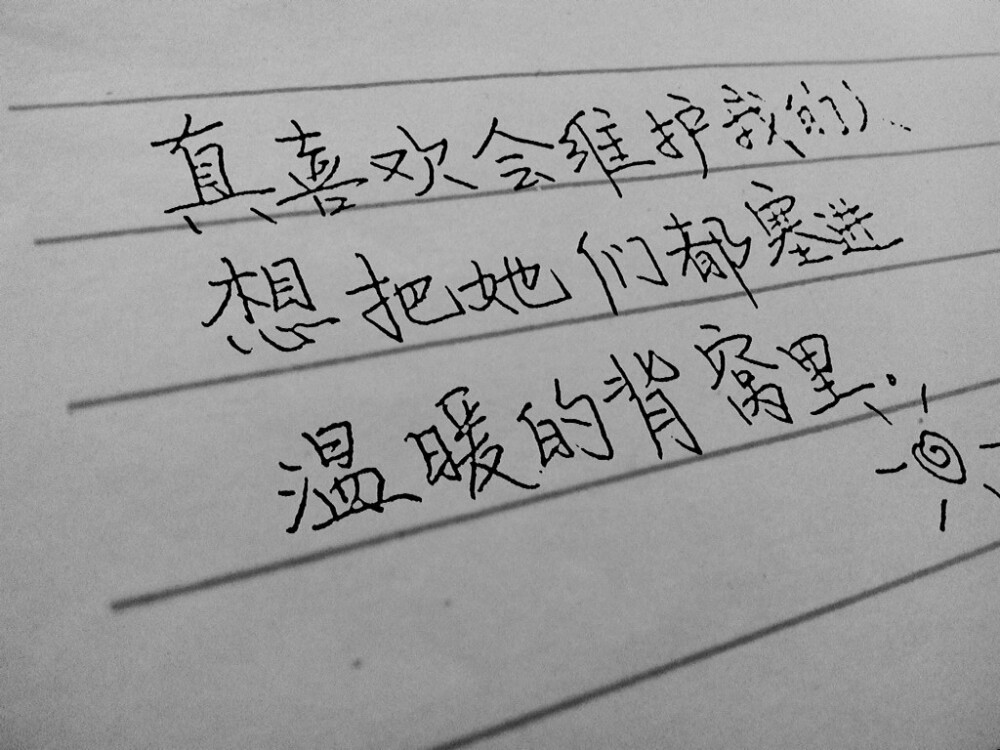 真喜欢会维护我的人
想把她们都塞进
温暖的背窝里.